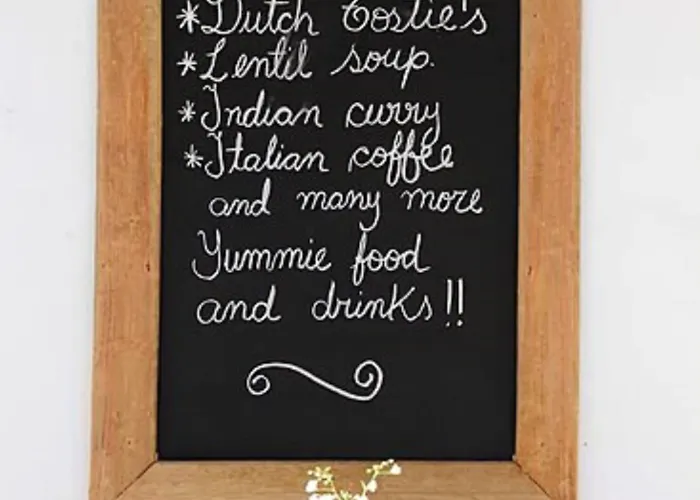 *Dutch Tostie's
*Lentil soup.
*Indian curry
*Italian coffee
and many more
Yummie food
and drinks!!